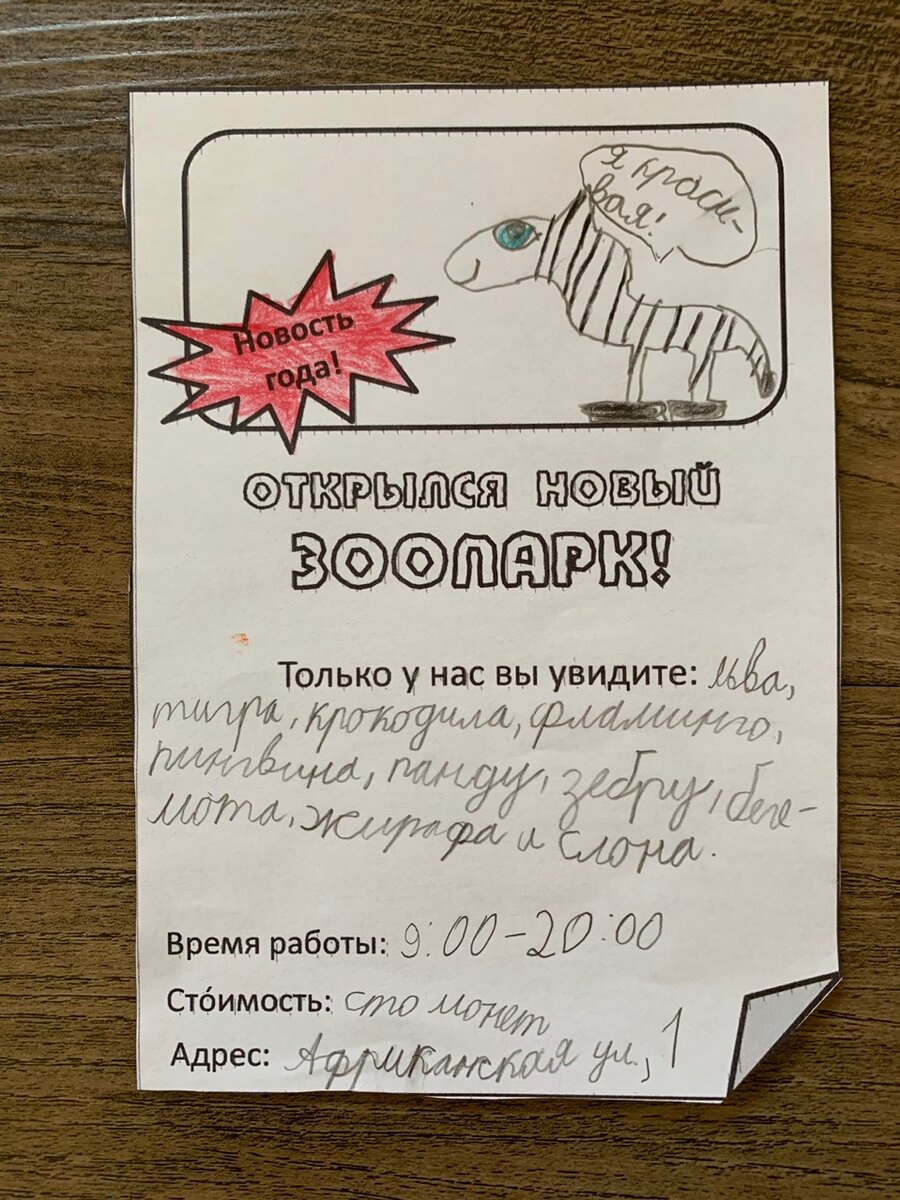 Я краси-
вая!
Новость
года!
ОТКРЫЛСЯ НОВЫЙ
ЗООПАРК!
Только у нас вы увидите: льва,
тигра, крокодила, фламинго,
пингвина, панду, зебру, беге-
мота, жирафа и слона.
Время работы: 9:00-20:00
Сто́имость: сто монет
Адрес: Африканская ул., 1